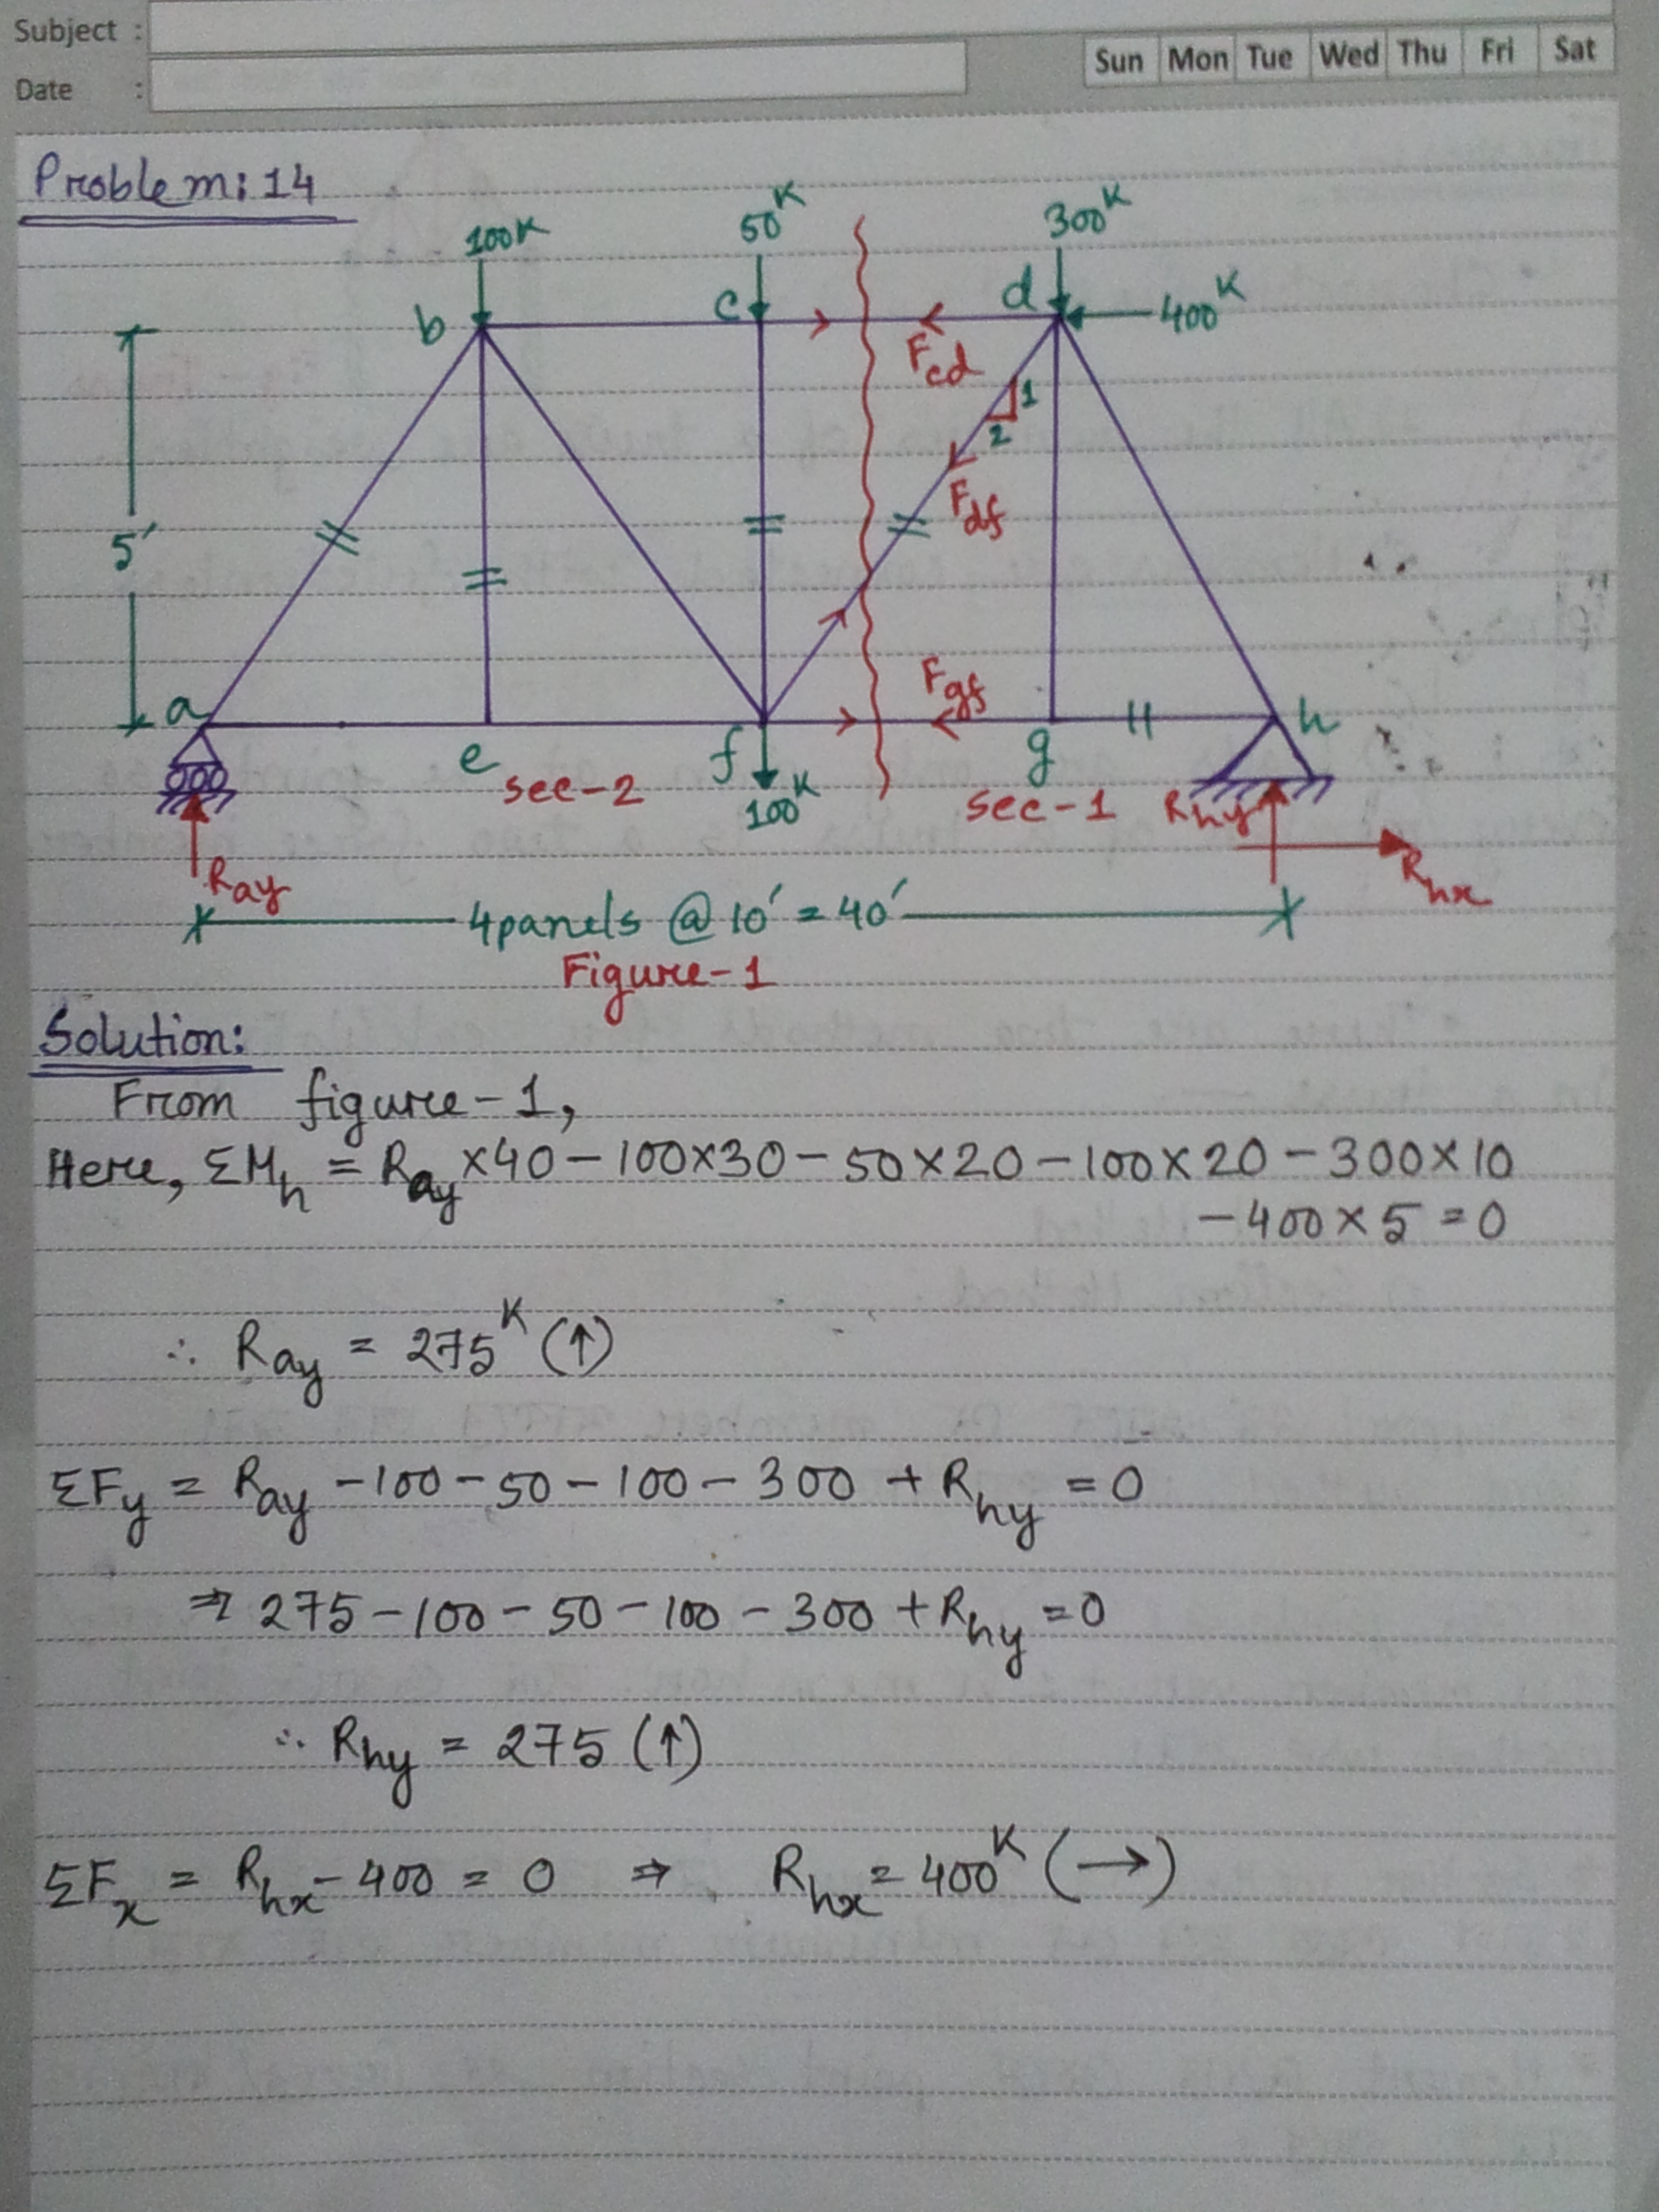 Subject :
Date :
Sun Mon Tue Wed Thu Fri Sat
Problem: 14
100K 50K 300K
b c d 400K
Fcd
1
2
5' Fdf
Fgf
a e f g h
sec-2 100K sec-1 Rhy
Ray Rhx
4 panels @ 10' = 40'
Figure-1
Solution:
From figure-1,
Here, ΣMh = Ray ×40 – 100×30 – 50×20 – 100×20 – 300×10
– 400×5 = 0
∴ Ray = 275K (↑)
ΣFy = Ray – 100 – 50 – 100 – 300 + Rhy = 0
⇒ 275 – 100 – 50 – 100 – 300 + Rhy = 0
∴ Rhy = 275 (↑)
ΣFx = Rhx – 400 = 0 ⇒ Rhx = 400K (→)